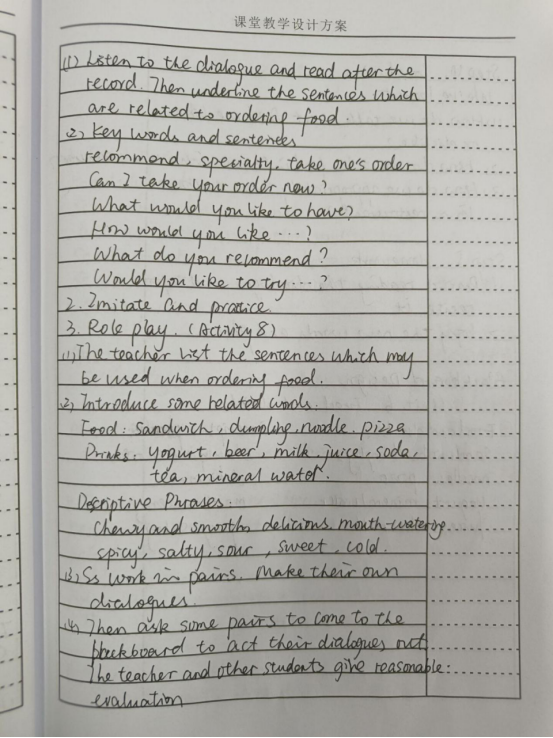 课堂教学设计方案
(1) Listen to the dialogue and read after the
record. Then underline the sentences which
are related to ordering food.
(2) Key words and sentences
recommend, specialty, take one's order
Can I take your order now?
What would you like to have?
How would you like ...?
What do you recommend?
Would you like to try ...?
2. Imitate and practice.
3. Role play. (Activity 8)
(1) The teacher list the sentences which may
be used when ordering food.
(2) Introduce some related words.
Food: sandwich, dumpling, noodle, pizza
Drinks: yogurt, beer, milk, juice, soda,
tea, mineral water.
Descriptive Phrases:
Chewy and smooth, delicious, mouth-watering,
spicy, salty, sour, sweet, cold.
(3) Ss work in pairs. Make their own
dialogues.
(4) Then ask some pairs to come to the
blackboard to act their dialogues out.
The teacher and other students give reasonable
evaluation